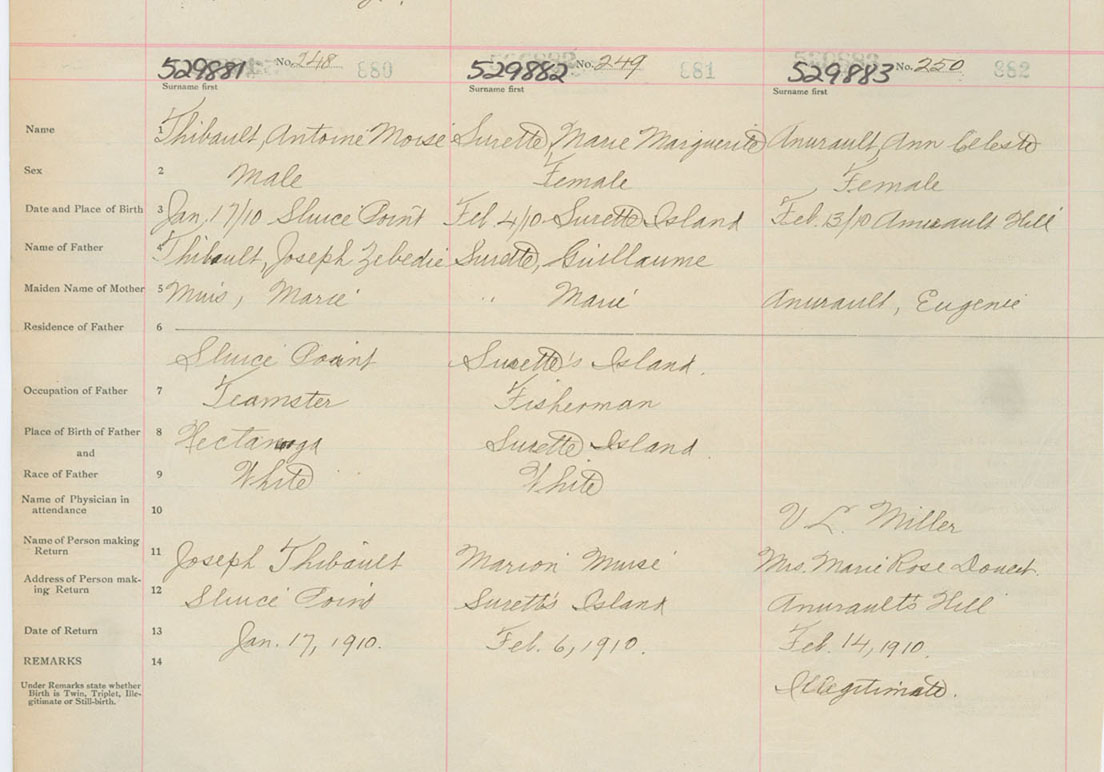 529881 No. 248 880 529882 No. 249 881 529883 No. 250 882
Surname first Surname first Surname first
Name 1 Thibault, Antoine Moise Surette, Marie Marguerite Amirault, Ann Celeste
Sex 2 Male Female Female
Date and Place of Birth 3 Jan. 17/10 Sluice Point Feb. 4/10 Surette Island Feb. 13/10 Amirault Hill
Name of Father 4 Thibault, Joseph Zebedie Surette, Guillaume
Maiden Name of Mother 5 Muis, Marie " Marie Amirault, Eugenie
Residence of Father 6
Sluice Point Surette's Island.
Occupation of Father 7 Teamster Fisherman
Place of Birth of Father 8 Hectanooga Surette Island
and
Race of Father 9 White White
Name of Physician in
attendance 10 Miller
Name of Person making
Return 11 Joseph Thibault Marion Muise Mrs. Marie Rose Doucet.
Address of Person mak-
ing Return 12 Sluice Point Surett's Island Amirault's Hill
Date of Return 13 Jan. 17, 1910. Feb. 6, 1910. Feb. 14, 1910.
REMARKS 14
Under Remarks state whether
Birth is Twin, Triplet, Ille-
gitimate or Still-birth.
Illegitimate.